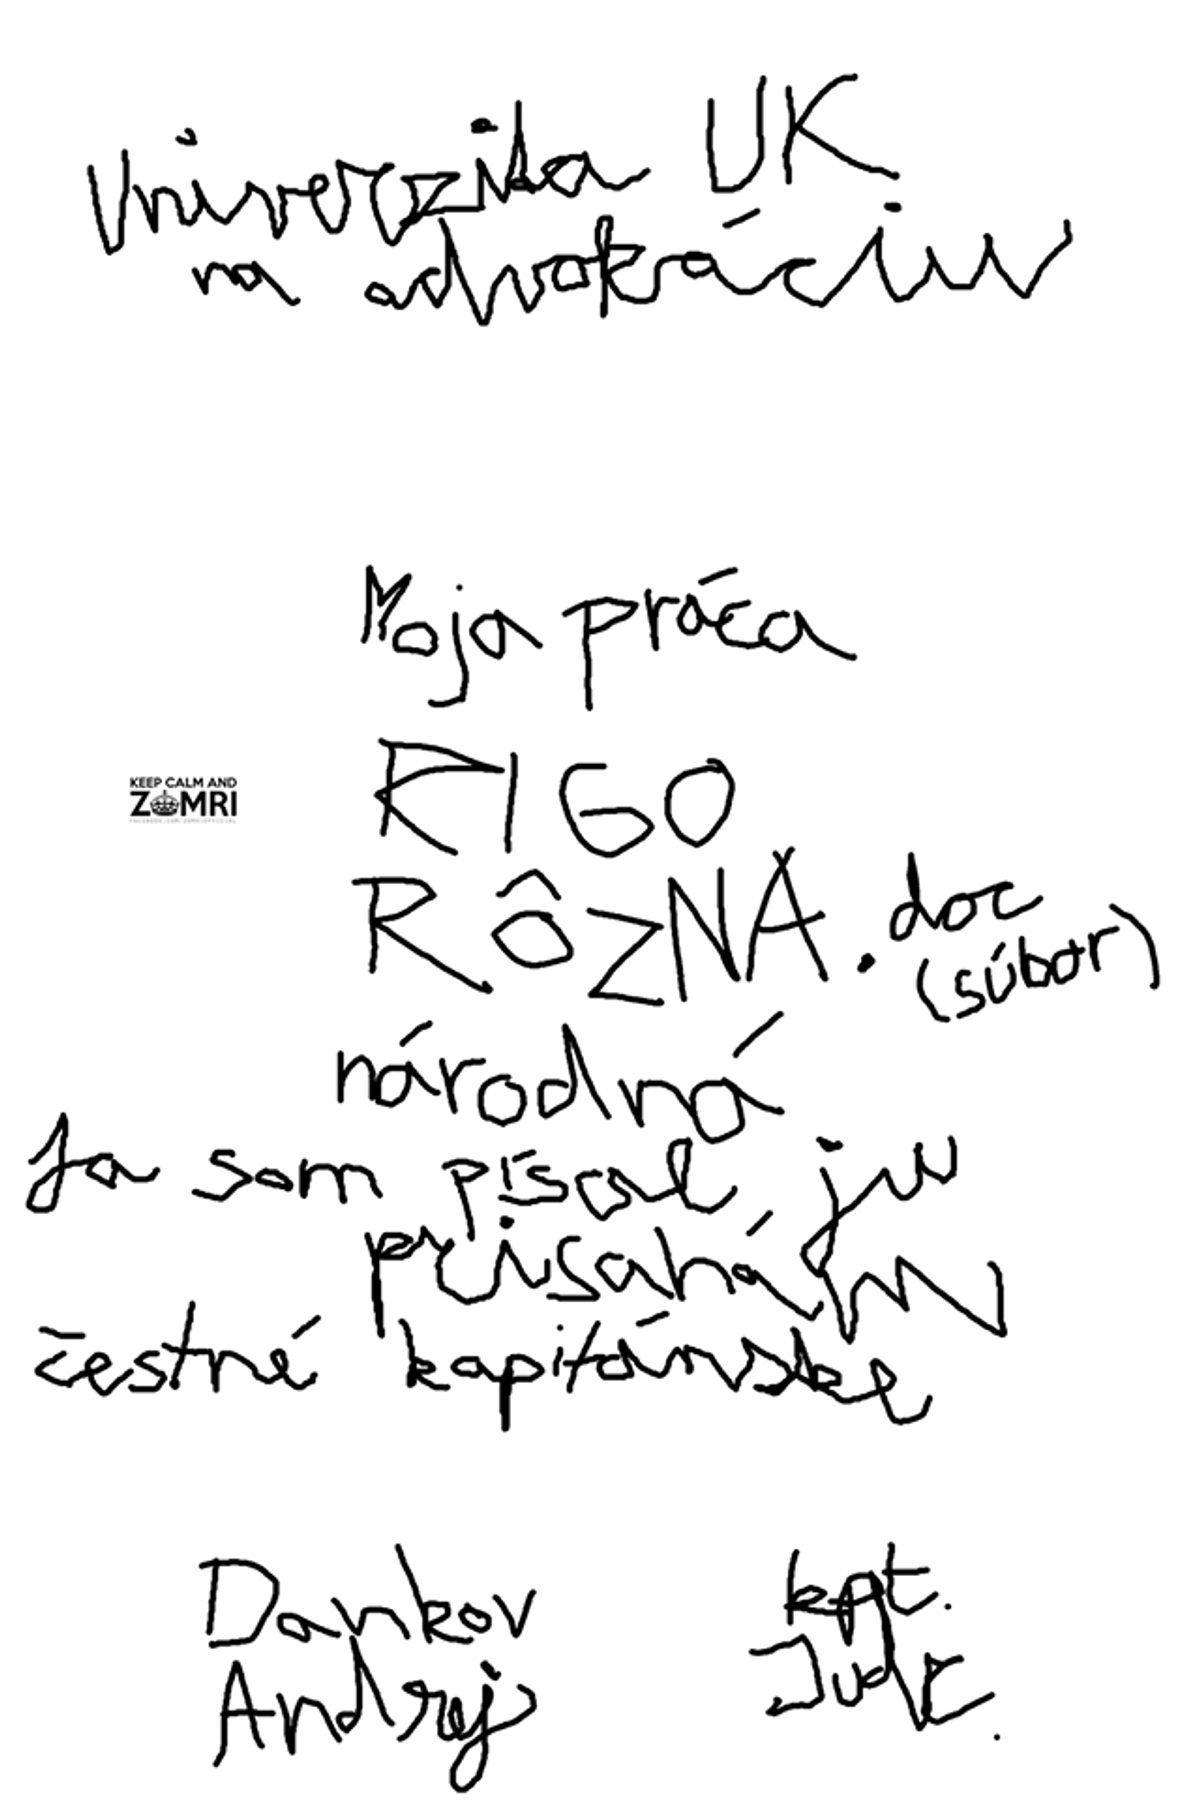 Univerzita UK
na advokáciu
Moja práca
KEEP CALM AND
ZOMRI
RIGO
RÔZNA.doc
(súbor)
národná
Ja som písal ju
prisahám
čestné kapitánske
Dankov kpt.
Andrej JudR.